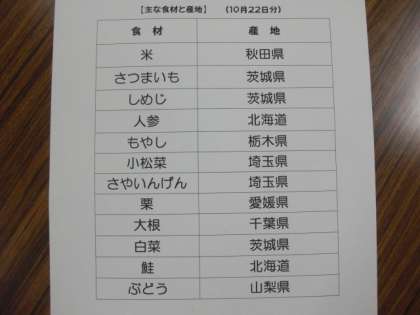 【主な食材と産地】 （10月22日分）
食 材 産 地
米 秋田県
さつまいも 茨城県
しめじ 茨城県
人参 北海道
もやし 栃木県
小松菜 埼玉県
さやいんげん 埼玉県
栗 愛媛県
大根 千葉県
白菜 茨城県
鮭 北海道
ぶどう 山梨県